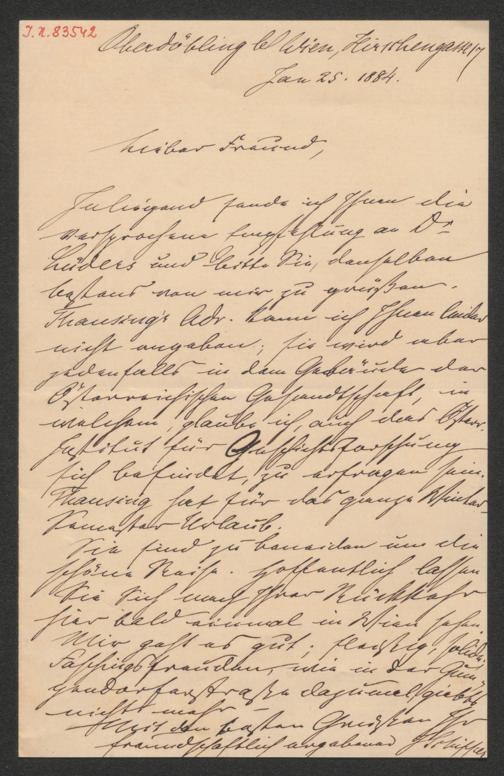 I.N. 83542
Oberdöbling b/ Wien, Hirschengasse 17
Jan 25. 1884.
Lieber Freund,
Inliegend sende ich Ihnen die
versprochene Empfehlung an Dr
Lüders und bitte Sie, denselben
bestens von mir zu grüßen.
Thausing's Adr. kann ich Ihnen leider
nicht angeben; sie wird aber
jedenfalls in dem Gebäude der
Österreichischen Gesandtschaft, in
welchem, glaube ich, auch das Österr.
Institut für Geschichtsforschung
sich befindet, zu erfragen sein.
Thausing hat für das ganze Winter-
Semester Urlaub.
Sie sind zu beneiden um die
schöne Reise. Hoffentlich lassen
Sie Sich nach Ihrer Rückkehr
hier bald einmal in Wien sehen.
Mir geht es gut; fleißig,
Faschingsfreuden, wie in der Gum-
pendorferstraße dazumal, giebt's
nicht mehr
Mit den besten Grüßen Ihr
freundschaftlich ergebener